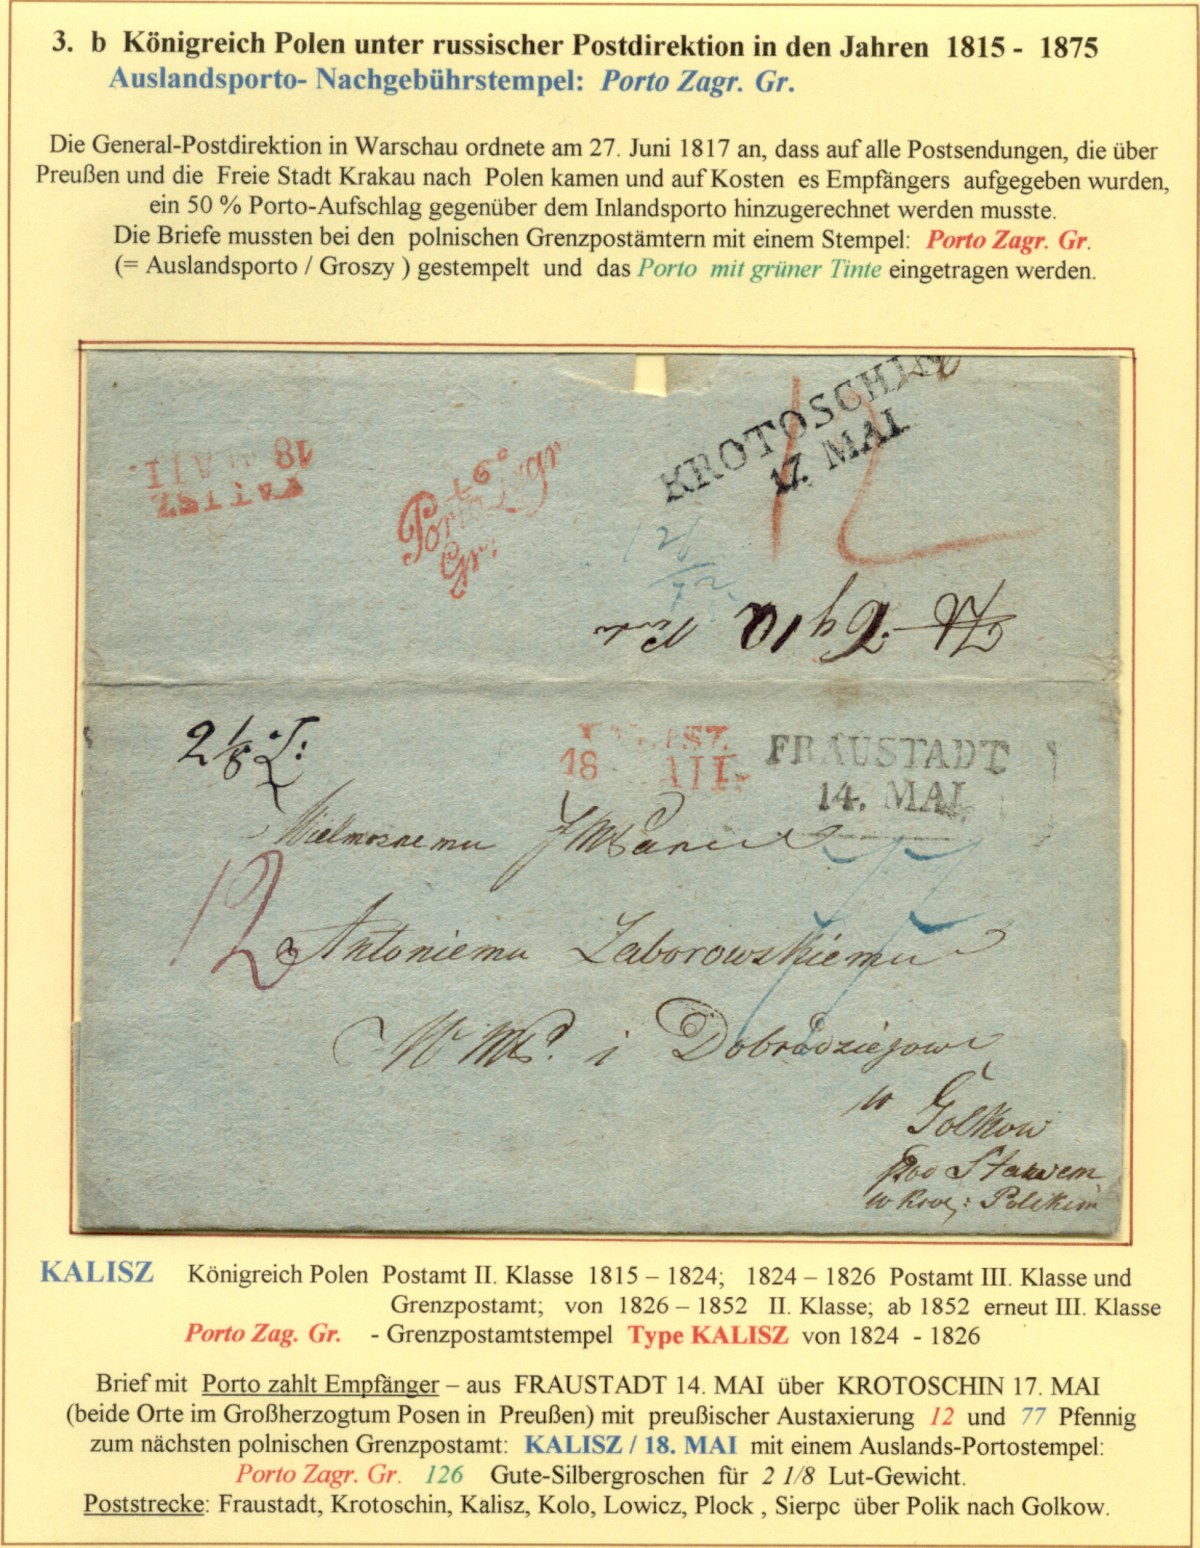 3. b Königreich Polen unter russischer Postdirektion in den Jahren 1815 - 1875
Auslandsporto- Nachgebührstempel: Porto Zagr. Gr.
Die General-Postdirektion in Warschau ordnete am 27. Juni 1817 an, dass auf alle Postsendungen, die über
Preußen und die Freie Stadt Krakau nach Polen kamen und auf Kosten es Empfängers aufgegeben wurden,
ein 50 % Porto-Aufschlag gegenüber dem Inlandsporto hinzugerechnet werden musste.
Die Briefe mussten bei den polnischen Grenzpostämtern mit einem Stempel: Porto Zagr. Gr.
(= Auslandsporto / Groszy ) gestempelt und das Porto mit grüner Tinte eingetragen werden.
KROTOSCHIN
17. MAI
12
Porto Zagr
Gr:
126
2 1/8 L:
18
FRAUSTADT
14. MAI
Wielmoznemu JMPanu
77
12
Antoniemu Zaborowskiemu
W MP. i Dobrodziejowi
w Golkow
pod
w Polskim
KALISZ Königreich Polen Postamt II. Klasse 1815 – 1824; 1824 – 1826 Postamt III. Klasse und
Grenzpostamt; von 1826 – 1852 II. Klasse; ab 1852 erneut III. Klasse
Porto Zag. Gr. - Grenzpostamtstempel Type KALISZ von 1824 - 1826
Brief mit Porto zahlt Empfänger – aus FRAUSTADT 14. MAI über KROTOSCHIN 17. MAI
(beide Orte im Großherzogtum Posen in Preußen) mit preußischer Austaxierung 12 und 77 Pfennig
zum nächsten polnischen Grenzpostamt: KALISZ / 18. MAI mit einem Auslands-Portostempel:
Porto Zagr. Gr. 126 Gute-Silbergroschen für 2 1/8 Lut-Gewicht.
Poststrecke: Fraustadt, Krotoschin, Kalisz, Kolo, Lowicz, Plock , Sierpc über Polik nach Golkow.